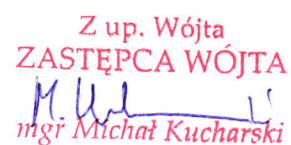 Z up. Wójta
ZASTĘPCA WÓJTA
mgr Michał Kucharski